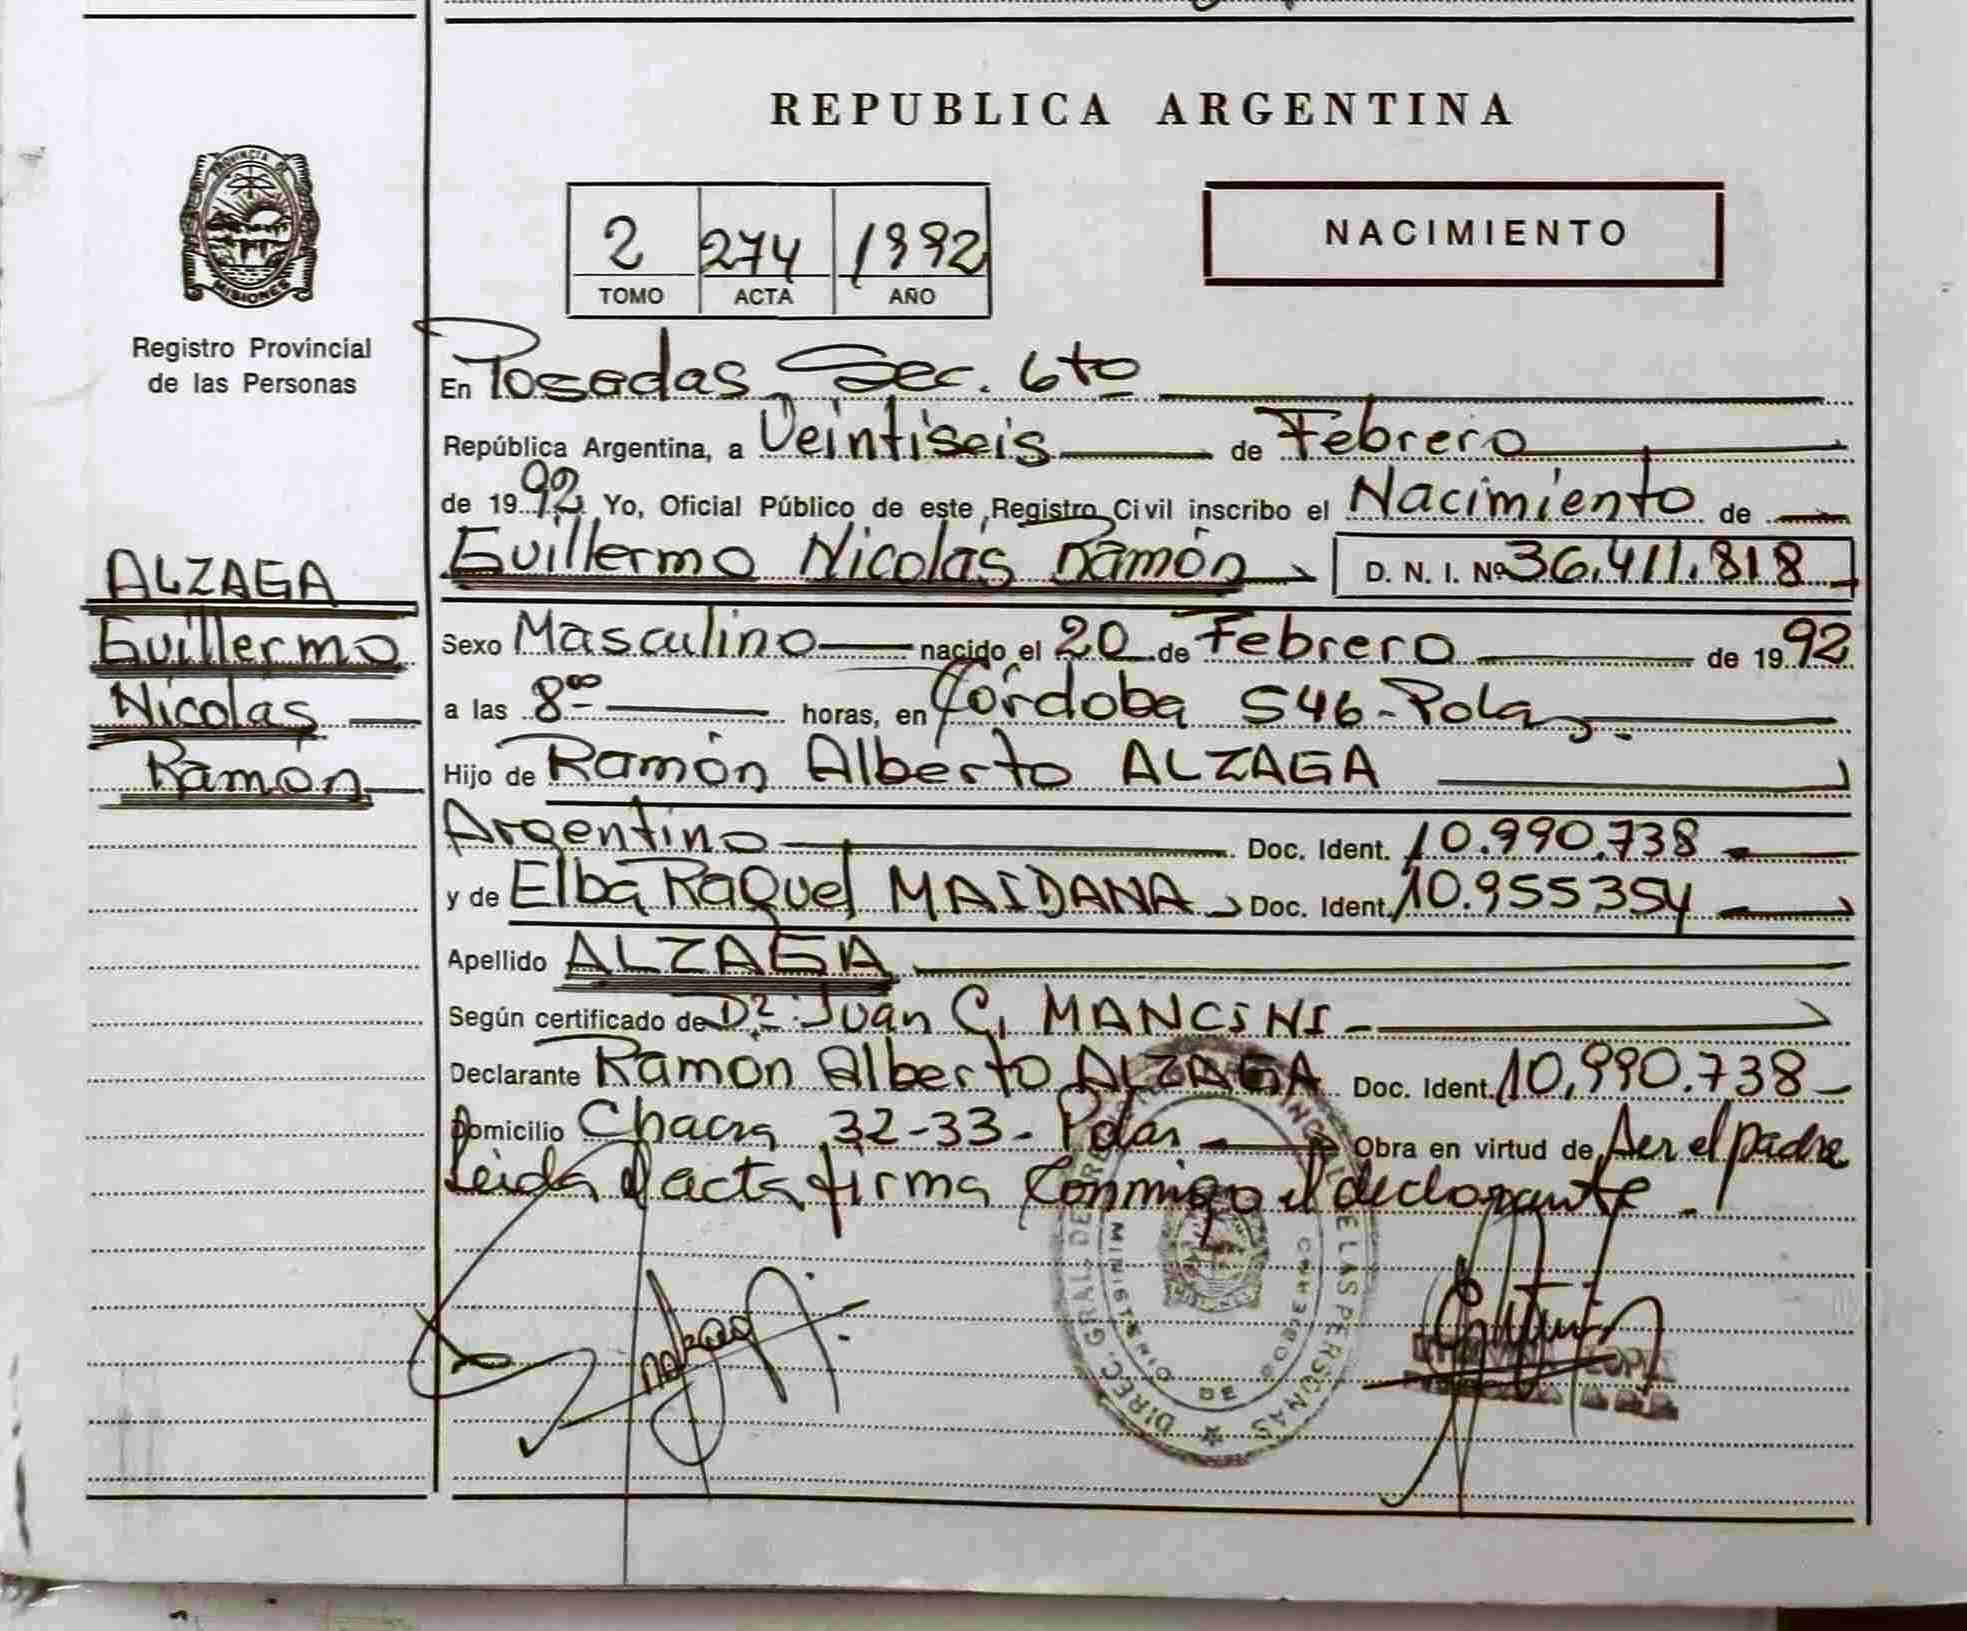 REPUBLICA ARGENTINA
PROVINCIA DE
MISIONES
Registro Provincial
de las Personas
2 274 1992
TOMO ACTA AÑO
NACIMIENTO
En Posadas Sec. 6to
República Argentina, a Veintiseis de Febrero
de 1992 Yo, Oficial Público de este Registro Civil inscribo el Nacimiento de
Guillermo Nicolás Ramón D. N. I. Nº 36.411.818
ALZAGA
Guillermo
Nicolás
Ramón
Sexo Masculino nacido el 20 de Febrero de 1992
a las 800 horas, en Córdoba 546-Pdas.
Hijo de Ramón Alberto ALZAGA
Argentino Doc. Ident. 10.990.738
y de Elba Raquel MAIDANA Doc. Ident. 10.955354
Apellido ALZAGA
Según certificado de Dr. Juan C. MANCINI
Declarante Ramon Alberto ALZAGA Doc. Ident. 10.990.738
Domicilio Chacra 32-33- Pdas Obra en virtud de ser el padre
Leida el acta firma conmigo el declarante.
DIREC. GRAL. DE LAS PERSONAS
DE